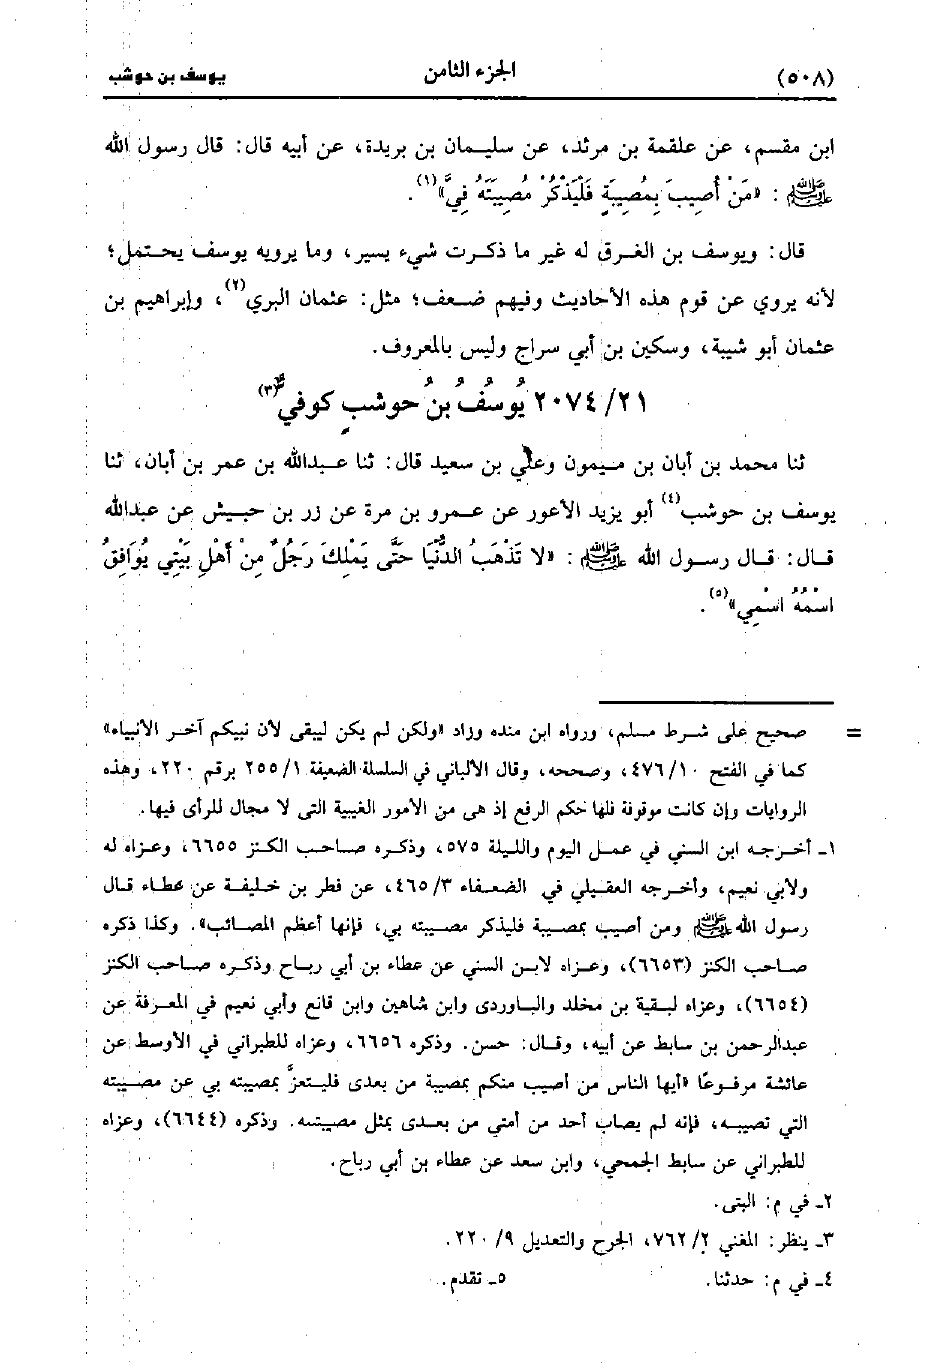 (٥٠٨) الجزء الثامن يوسف بن حوشب
ابن مقسم، عن علقمة بن مرثد، عن سليمان بن بريدة، عن أبيه قال: قال رسول الله
ﷺ : «مَنْ أُصِيبَ بِمُصِيبَةٍ فَلْيَذْكُرْ مُصِيبَتَهُ فِيَّ»(١).
قال: ويوسف بن الغرق له غير ما ذكرت شيء يسير، وما يرويه يوسف يحتمل؛
لأنه يروي عن قوم هذه الأحاديث وفيهم ضعف؛ مثل: عثمان البري(٢)، وإبراهيم بن
عثمان أبو شيبة، وسكين بن أبي سراج وليس بالمعروف.
٢٠٧٤/٢١ يُوسُفُ بْنُ حوشبٍ كوفيٌّ(٣)
ثنا محمد بن أبان بن ميمون وعلي بن سعيد قال: ثنا عبدالله بن عمر بن أبان، ثنا
يوسف بن حوشب(٤) أبو يزيد الأعور عن عمرو بن مرة عن زر بن حبيش عن عبدالله
قال: قال رسول الله ﷺ : «لا تَذْهَبُ الدُّنْيَا حَتَّى يَمْلِكَ رَجُلٌ مِنْ أَهْلِ بَيْتِي يُوَافِقُ
اسْمُهُ اسْمِي»(٥).
= صحيح على شرط مسلم، ورواه ابن منده وزاد «ولكن لم يكن ليبقى لأن نبيكم آخر الأنبياء»
كما في الفتح ٤٧٦/١٠، وصححه، وقال الألباني في السلسلة الضعيفة ٢٥٥/١ برقم ٢٢٠، وهذه
الروايات وإن كانت موقوفة فلها حكم الرفع إذ هى من الأمور الغيبية التى لا مجال للرأى فيها.
١ـ أخرجه ابن السني في عمل اليوم والليلة ٥٧٥، وذكره صاحب الكنز ٦٦٥٥، وعزاه له
ولابي نعيم، وأخرجه العقيلي في الضعفاء ٤٦٥/٣، عن فطر بن خليفة عن عطاء قال
رسول الله ﷺ ومن أصيب بمصيبة فليذكر مصيبته بي، فإنها أعظم المصائب». وكذا ذكره
صاحب الكنز (٦٦٥٣)، وعزاه لابن السني عن عطاء بن أبي رباح وذكره صاحب الكنز
(٦٦٥٤)، وعزاه لبقية بن مخلد والباوردى وابن شاهين وابن قانع وأبي نعيم في المعرفة عن
عبدالرحمن بن سابط عن أبيه، وقال: حسن. وذكره ٦٦٥٦، وعزاه للطبراني في الأوسط عن
عائشة مرفوعًا «أيها الناس من أصيب منكم بمصيبة من بعدى فليتعزَّ بمصيبته بي عن مصيبته
التي تصيبه، فإنه لم يصاب أحد من أمتي من بعدى بمثل مصيبته. وذكره (٦٦٤٤)، وعزاه
للطبراني عن سابط الجمحي، وابن سعد عن عطاء بن أبي رباح.
٢ـ في م: البتى.
٣ـ ينظر: المغني ٧٦٢/٢، الجرح والتعديل ٢٢٠/٩.
٤ـ في م: حدثنا. ٥ـ تقدم.